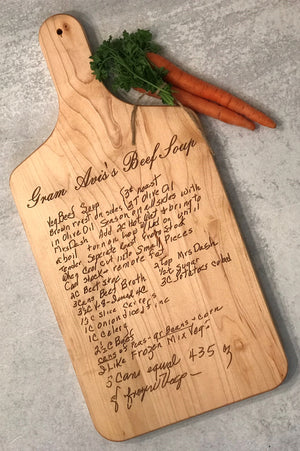 Gram Avis's Beef Soup
Veg Beef Soup 3# roast
Brown roast on sides 2T Olive Oil
in Olive Oil Season all sides with
Mrs Dash Add 2C Hot Water + bring to
a boil turn on low until
Tender Separate beef from Stock
when Cool cut into Small Pieces
Cool stock - remove fat
2C Beef
3cans Beef Broth
1½C Slice Carrots
1C Onion diced fine
1C Celery
2 tsp Mrs Dash
½C Sugar
3C Potatoes cubed
cans of Peas-gr Beans-corn
I Like Frozen Mix Veg-
3 Cans equal 435 oz
of frozen Veg-